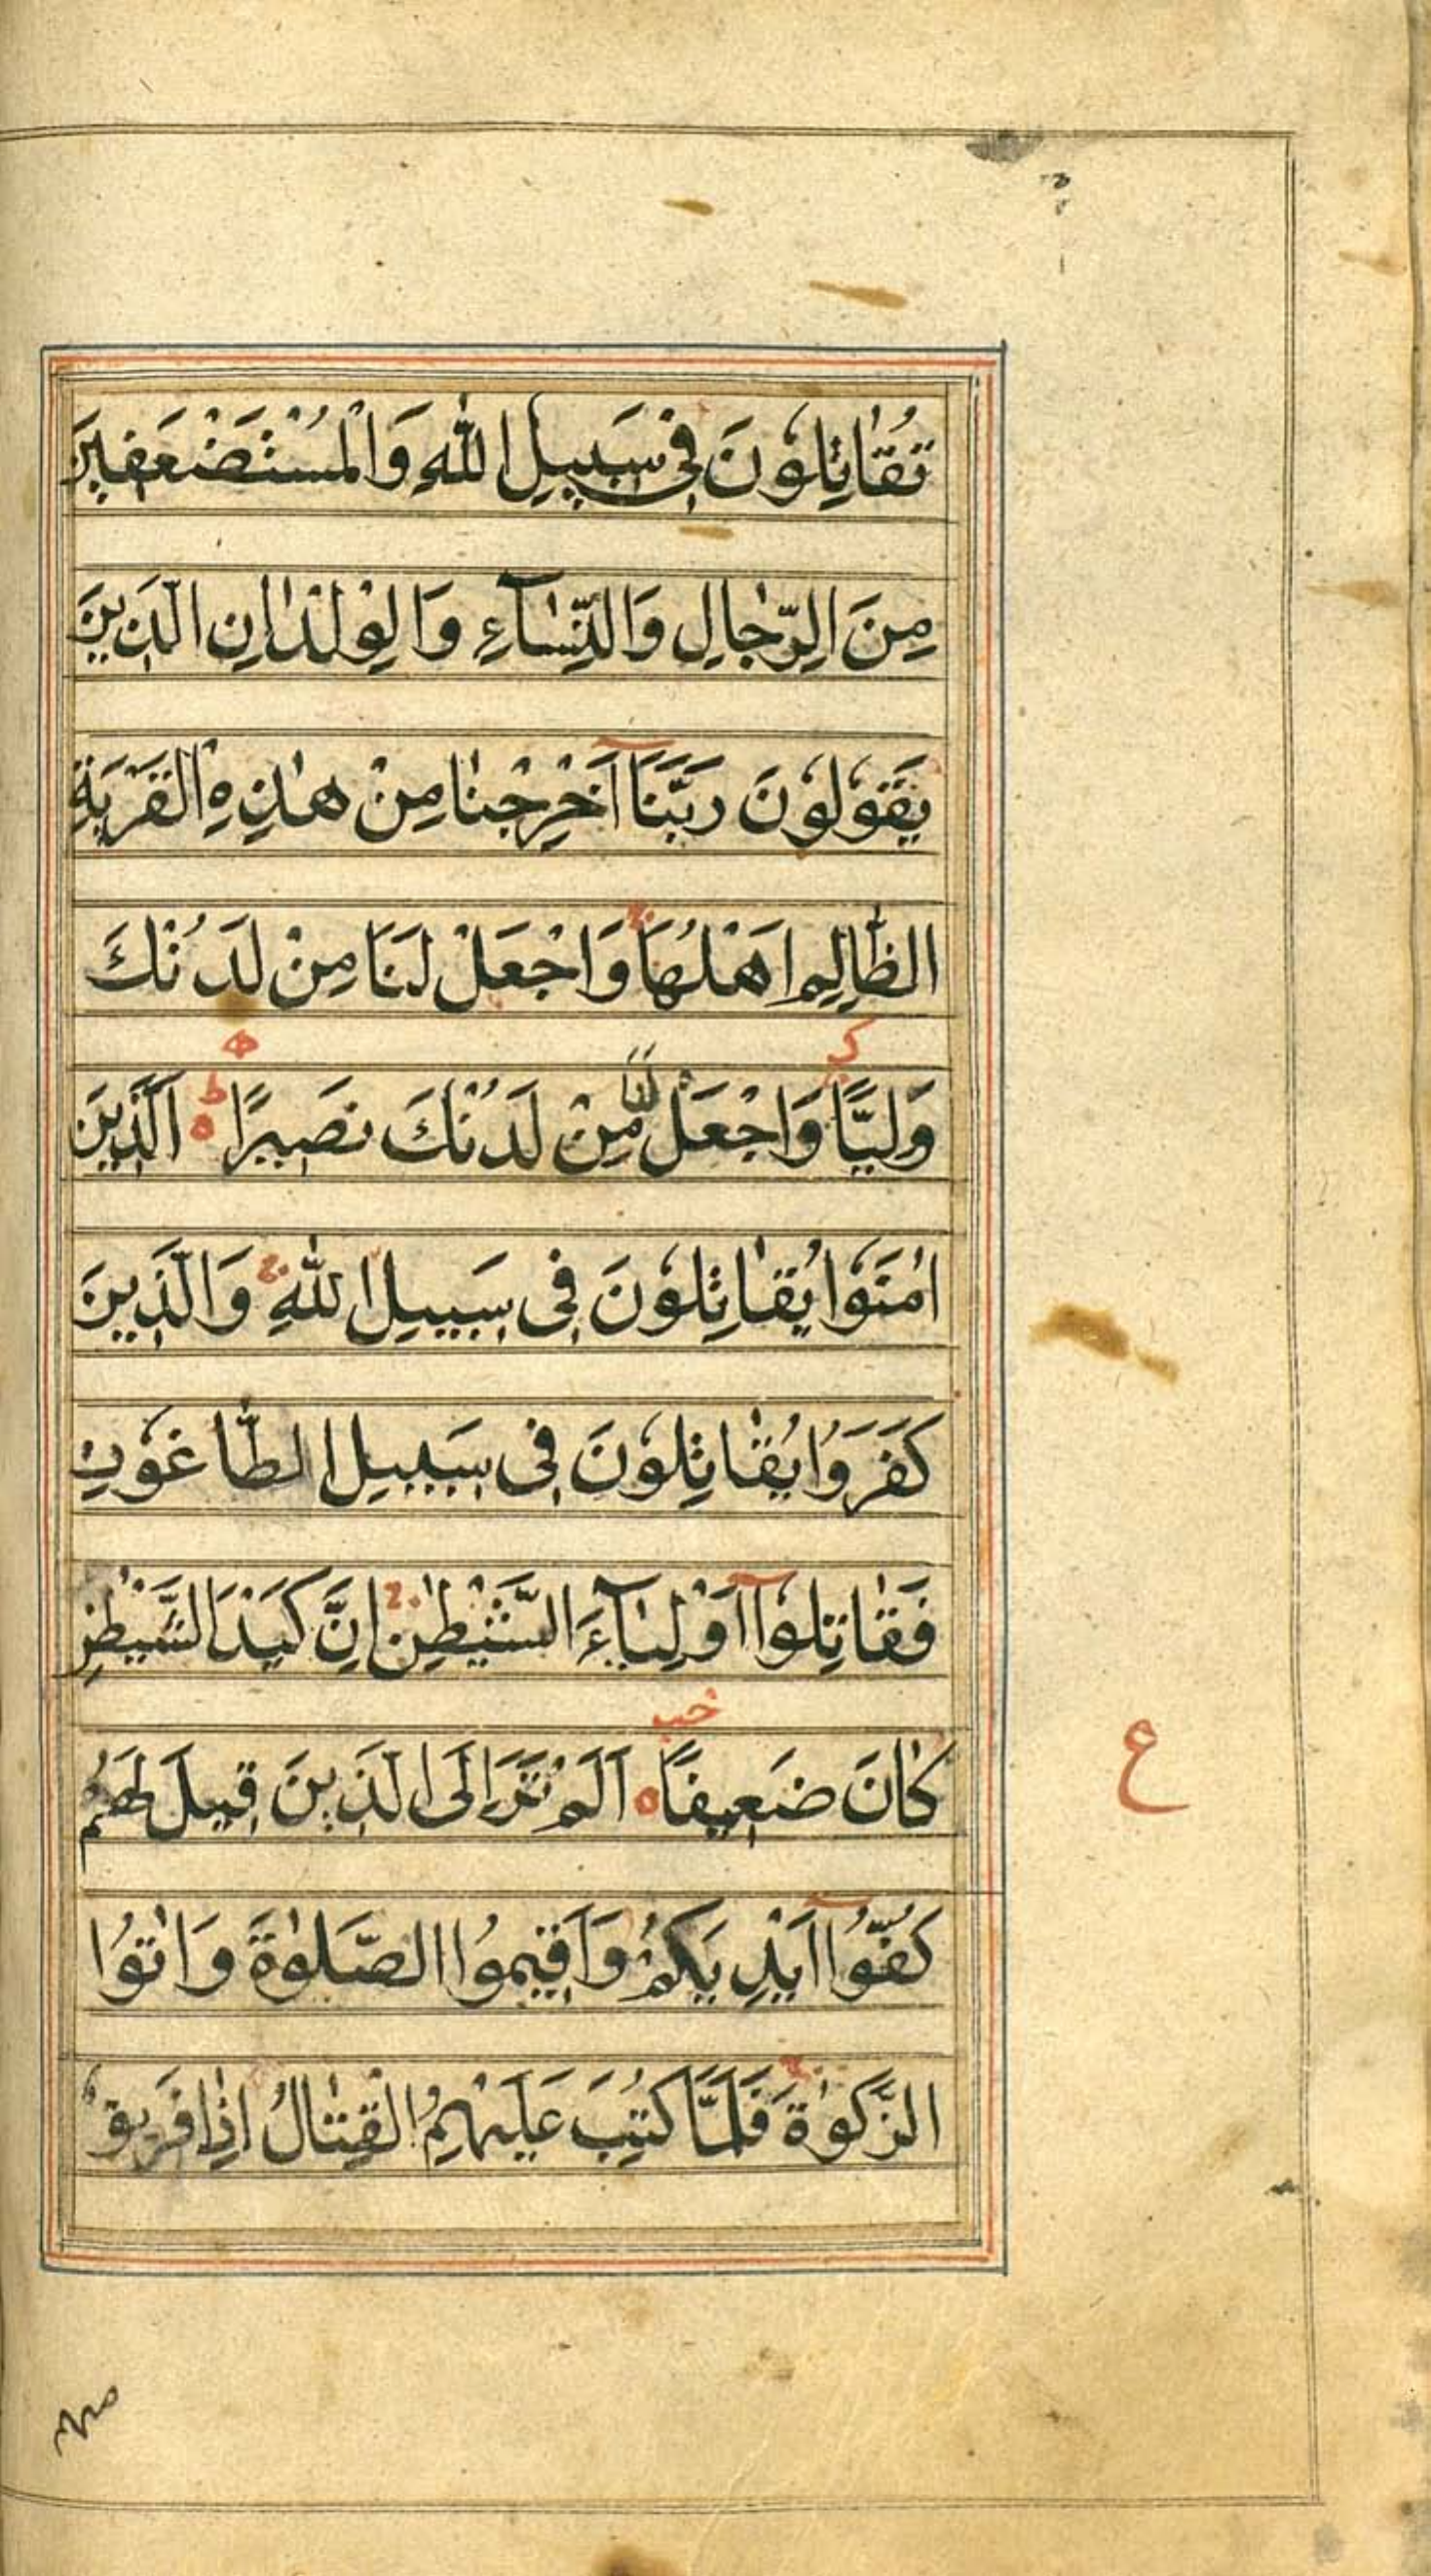 تُقَاتِلُونَ فِي سَبِيلِ اللّٰهِ وَالْمُسْتَضْعَفِينَ
مِنَ الرِّجَالِ وَالنِّسَآءِ وَالْوِلْدَانِ الَّذِينَ
يَقُولُونَ رَبَّنَآ اَخْرِجْنَا مِنْ هٰذِهِ الْقَرْيَةِ
الظَّالِمِ اَهْلُهَا ج وَاجْعَلْ لَنَا مِنْ لَدُنْكَ
وَلِيًّا وَاجْعَلْ لَنَا مِنْ لَدُنْكَ نَصِيرًا ط اَلَّذِينَ
اٰمَنُوا يُقَاتِلُونَ فِي سَبِيلِ اللّٰهِ ج وَالَّذِينَ
كَفَرُوا يُقَاتِلُونَ فِي سَبِيلِ الطَّاغُوتِ
فَقَاتِلُوآ اَوْلِيَآءَ الشَّيْطٰنِ ج اِنَّ كَيْدَ الشَّيْطٰنِ
كَانَ ضَعِيفًا اَلَمْ تَرَ اِلَى الَّذِينَ قِيلَ لَهُمْ
ع
كُفُّوآ اَيْدِيَكُمْ وَاَقِيمُوا الصَّلٰوةَ وَاٰتُوا
الزَّكٰوةَ ج فَلَمَّا كُتِبَ عَلَيْهِمُ الْقِتَالُ اِذَا فَرِيقٌ